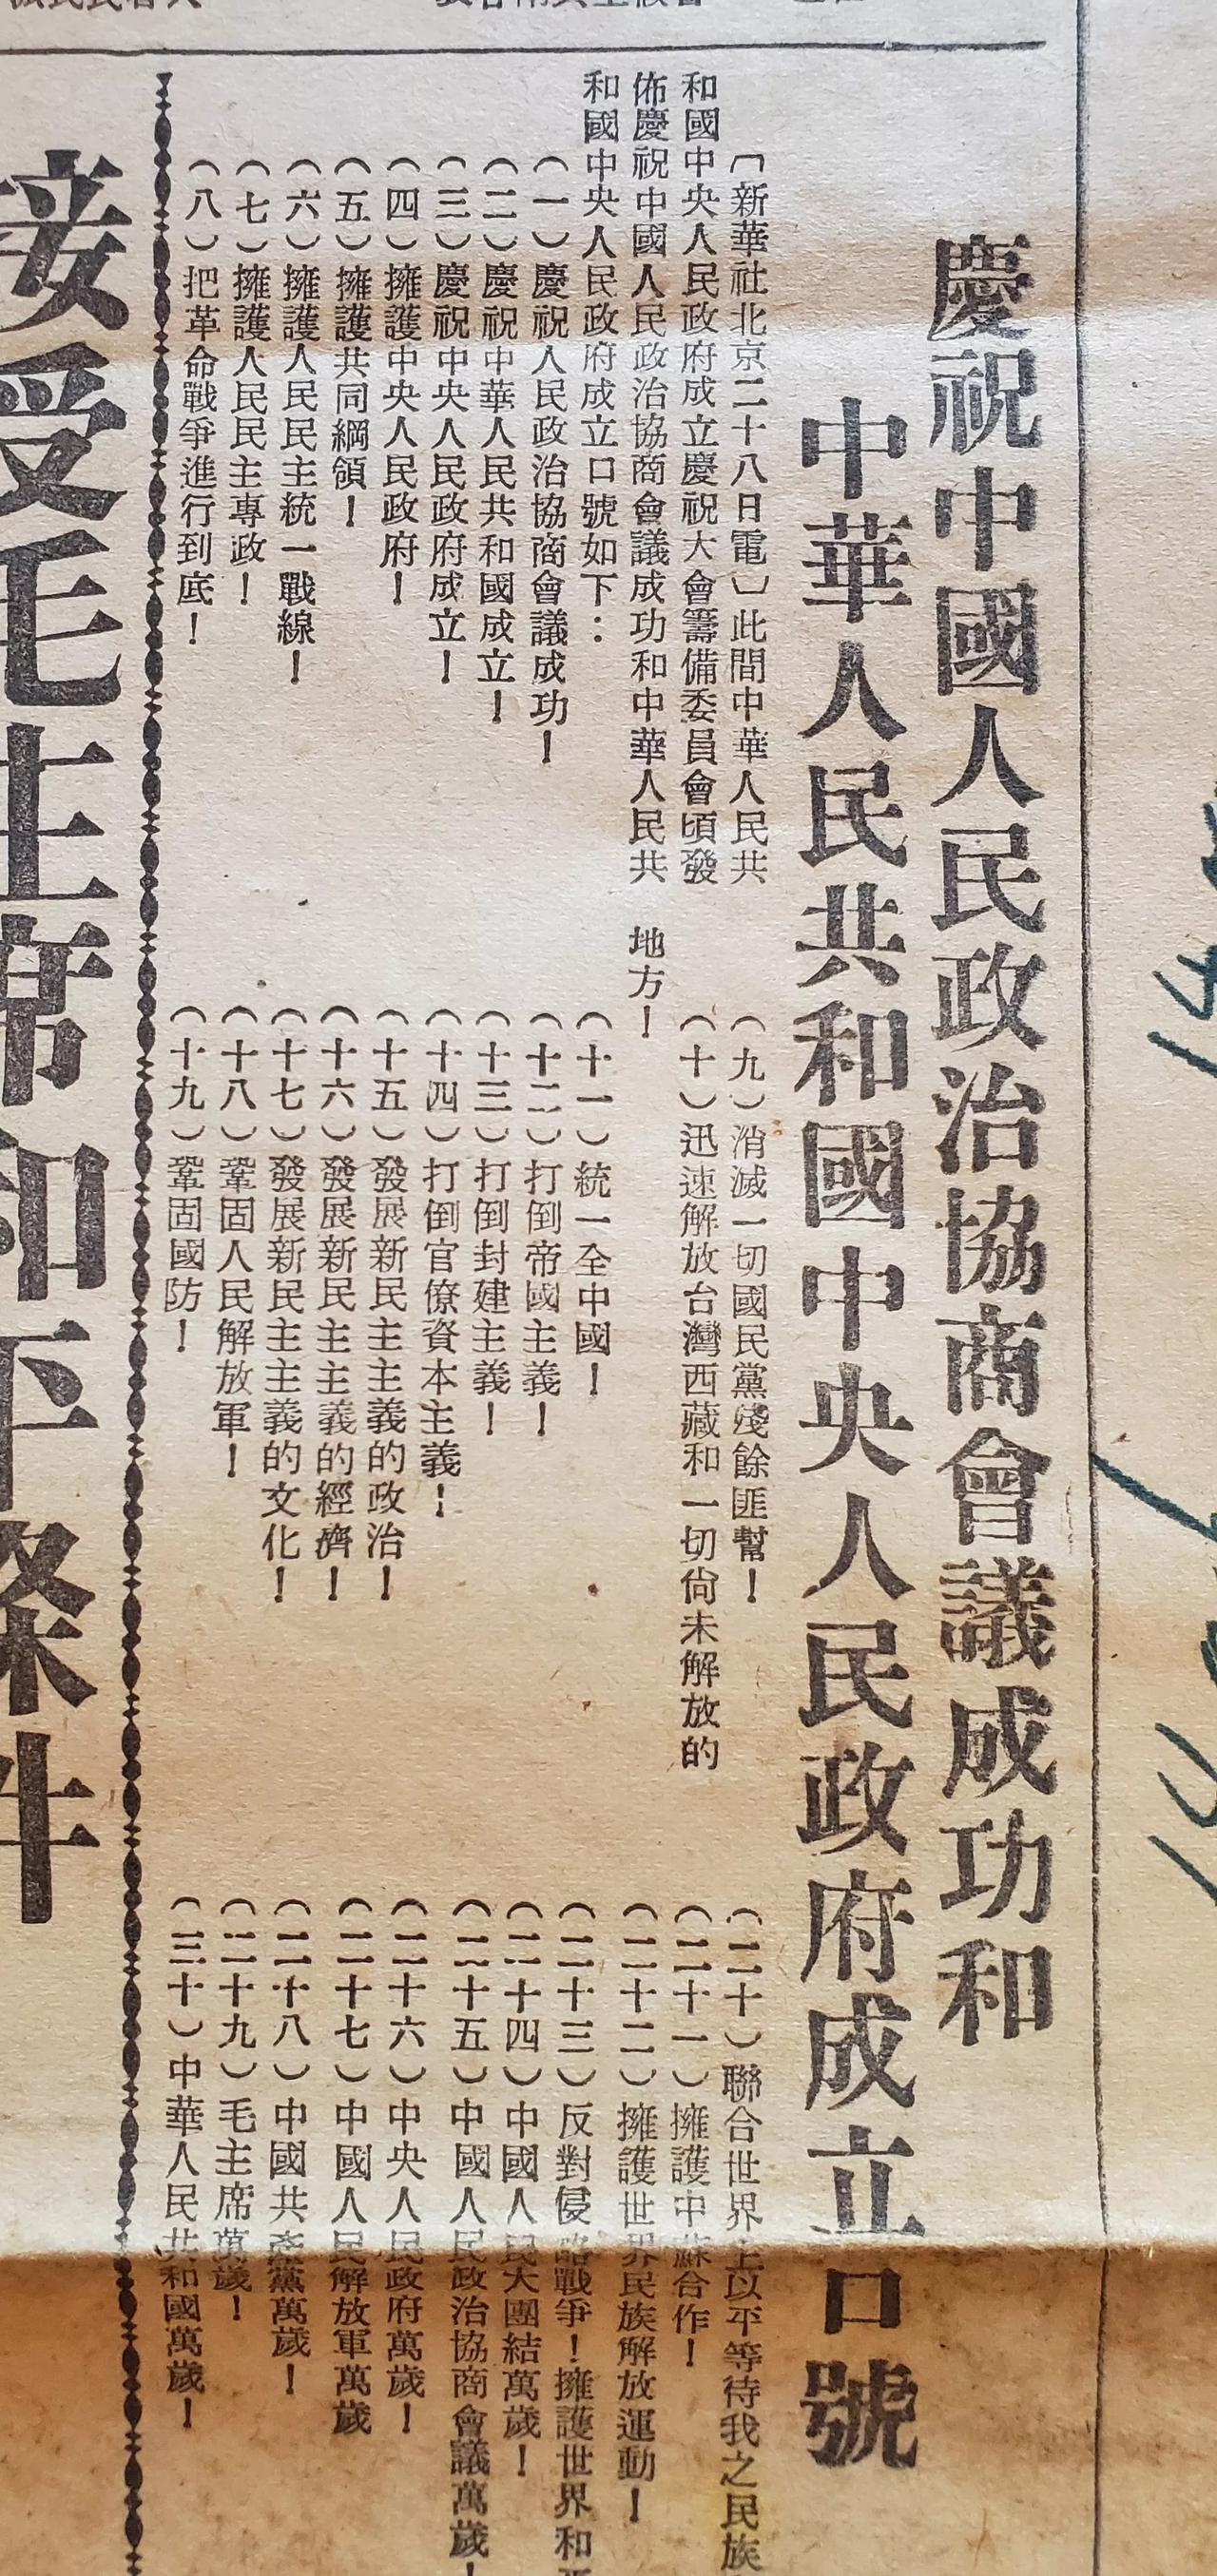 慶祝中國人民政治協商會議成功和
中華人民共和國中央人民政府成立口號
〔新華社北京二十八日電〕此間中華人民共
和國中央人民政府成立慶祝大會籌備委員會頃發
佈慶祝中國人民政治協商會議成功和中華人民共
和國中央人民政府成立口號如下：
（一）慶祝人民政治協商會議成功！
（二）慶祝中華人民共和國成立！
（三）慶祝中央人民政府成立！
（四）擁護中央人民政府！
（五）擁護共同綱領！
（六）擁護人民民主統一戰線！
（七）擁護人民民主專政！
（八）把革命戰爭進行到底！
（九）消滅一切國民黨殘餘匪幫！
（十）迅速解放台灣西藏和一切尚未解放的
地方！
（十一）統一全中國！
（十二）打倒帝國主義！
（十三）打倒封建主義！
（十四）打倒官僚資本主義！
（十五）發展新民主主義的政治！
（十六）發展新民主主義的經濟！
（十七）發展新民主主義的文化！
（十八）鞏固人民解放軍！
（十九）鞏固國防！
（二十）聯合世界上以平等待我之民族
（二十一）擁護中蘇合作！
（二十二）擁護世界民族解放運動！
（二十三）反對侵略戰爭！擁護世界和
（二十四）中國人民大團結萬歲！
（二十五）中國人民政治協商會議萬歲！
（二十六）中央人民政府萬歲！
（二十七）中國人民解放軍萬歲
（二十八）中國共產黨萬歲！
（二十九）毛主席萬歲！
（三十）中華人民共和國萬歲！
接受毛主席和平條件